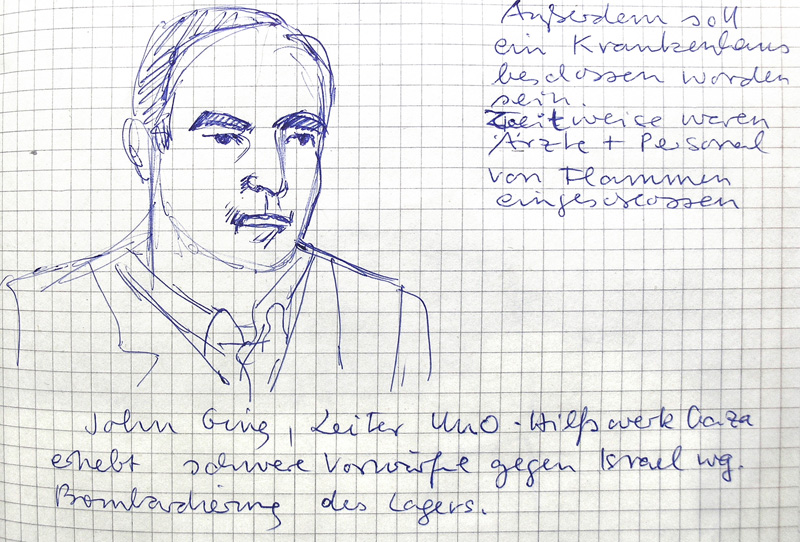 Außerdem soll
ein Krankenhaus
beschossen worden
sein.
Zeitweise waren
Ärzte + Personal
von Flammen
eingeschlossen
John Ging, Leiter UNO-Hilfswerk Gaza
erhebt schwere Vorwürfe gegen Israel wg.
Bombardierung des Lagers.